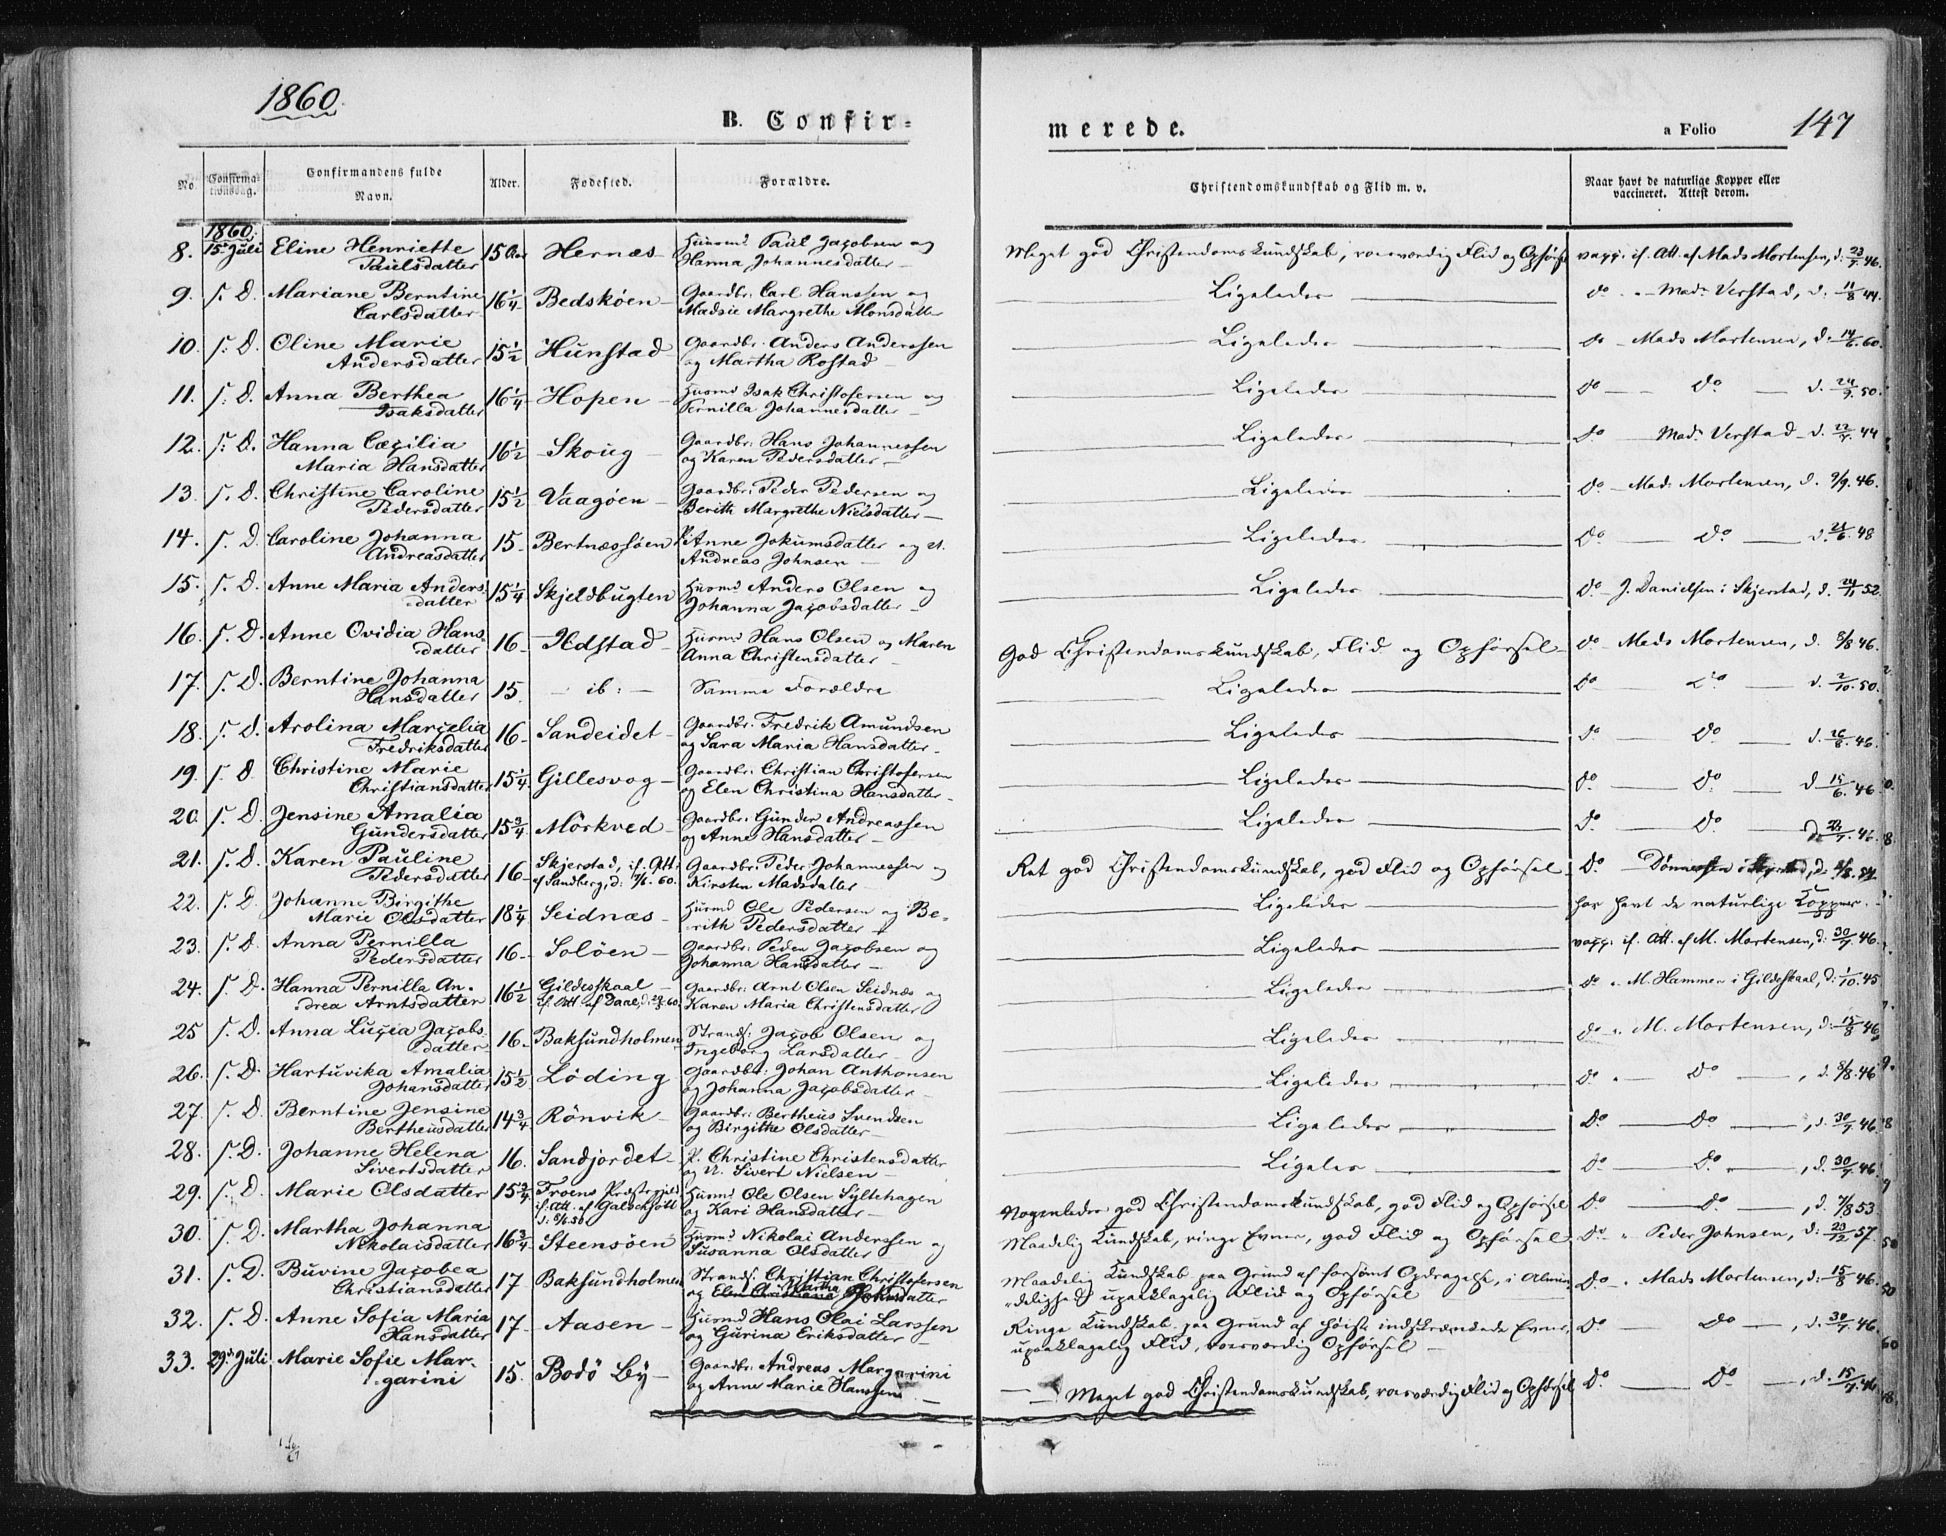 1860.
B. Confir=
merede.
a Folio 147
No.
Confirma-
tionsdag.
Confirmandens fulde
Navn.
Alder.
Fødested.
Forældre.
Christendomskundskab og Flid m. v.
Naar havt de naturlige Kopper eller
vaccineret. Attest derom.
1860.
8. 15de Juli Eline Henriette Paulsdatter 15 Aar Hernæs Huusmd Paul Jacobsen og Hanna Johannesdatter Meget god Christendomskundskab, roesværdig Flid og Opførsel vacc: if. Att. af Mads Mortensen, d. 23/7 46.
9. s. D. Mariane Berntine Carlsdatter 16 1/4 Bedskøen Gaardbr: Carl Hanssen og Madsie Margrethe Monsdatter Ligeledes do - Mad: Verstad, d. 11/8 44.
10. s. D. Oline Marie Andersdatter 15 1/2 Hunstad Gaardbr: Anders Anderssen og Martha Rostad Ligeledes do - Mads Mortensen, d. 14/6. 60.
11. s. D. Anna Berthea Isaksdatter 16 1/4 Hopen Huusmd Isak Christofersen og Pernilla Johannesdatter Ligeledes do - Do - d. 24/7. 50.
12. s. D. Hanna Cæcilia Maria Hansdatter 16 1/2 Skoug Gaardbr: Hans Johannessen og Karen Pedersdatter Ligeledes do Mad: Verstad - d. 22/7. 44
13. s. D. Christine Caroline Pedersdatter 15 1/2 Vaagøen Gaardbr: Peder Pedersen og Berith Margrethe Nielsdatter Ligeledes do - Mad: Mortensen, d. 9/9. 46.
14. s. D. Caroline Johanna Andreasdatter 15 Bertnæssøen P. Anne Jokumsdatter og U. Andreas Johnsen Ligeledes do - Do - d. 21/6. 48
15. s. D. Anne Maria Andersdatter 15 1/4 Skjeldbugten Huusmd Anders Olsen og Johanna Jacobsdatter Ligeledes do J. Danielsen i Skjerstad, d. 24/11 52.
16. s. D. Anne Ovidia Hansdatter 16 Ildstad Huusmd Hans Olsen og Maren Anna Christensdatter God Christendomskundskab, Flid og Opførsel do - Mads Mortensen, d. 8/8 46.
17. s. D. Berntine Johanna Hansdatter 15. ib: Samme Forældre Ligeledes do - Do - d. 2/10. 50.
18. s. D. Arolina Marcelia Fredriksdatter 16 Sandeidet Gaardbr: Fredrik Amundsen og Sara Maria Hansdatter Ligeledes do - Do - d. 26/8. 46.
19. s. D. Christine Marie Christiansdatter 15 1/4 Gillesvog Gaardbr: Christian Christofersen og Elen Christina Hansdatter Ligeledes do - Do - d 15/6. 46
20. s. D. Jensine Amalia Gundersdatter 15 3/4 Mörkved Gaardbr: Gunder Andreassen og Anne Hansdatter Ligeledes do - Do - 46.
21. s. D. Karen Pauline Pedersdatter 16 Skjerstad, if. Att: af Sandberg, d: 7/6. 60. Gaardbr: Peder Johannessen og Kirsten Madsdatter Ret god Christendomskundskab, god Flid og Opførsel do
22. s. D. Johanne Birgithe Marie Olsdatter 18 1/4 Seidnæs Huusmd Ole Pedersen og Berith Pedersdatter Ligeledes har havt de naturlige Kopper.
23. s. D. Anna Pernilla Pedersdatter 16 Soløen Gaardbr: Peder Jacobsen og Johanna Hansdatter Ligeledes vacc: if. Att. af M. Mortensen, d: 30/7. 46.
24. s. D. Hanna Pernilla Andrea Arntsdatter 16 1/2 Gildesskaal if. Att af Dane, 60. Gaardbr: Arnt Olsen Seidnæs og Karen Maria Christensdatter Ligeledes do - M. Hammer i Gildeskaal, d: 1/10. 45
25 s. D. Anna Lucia Jacobsdatter 16 Baksundholmen Strands: Jacob Olsen og Ingeborg Larsdatter Ligeledes do - M. Mortensen, d: 15/8 46
26. s. D. Hartuvika Amalia Johansdatter 15 1/2 Löding Gaardbr: Johan Anthonsen og Johanna Jacobsdatter Ligeledes do - Do - , d. 8/8. 46
27. s. D. Berntine Jensine Bertheusdatter 14 3/4 Rönvik Gaardbr: Bertheus Svendsen og Birgithe Olsdatter Ligeledes do - Do - , d. 30/7. 46
28. s. D. Johanne Helena Sivertsdatter 16. Sandjordet P. Christine Christensdatter og U. Sivert Nielsen Ligeledes do - Do - , d. 30/7. 46
29. s. D. Marie Olsdatter 15 3/4 Froens Præstegjeld if. Att. af Galschjött Huusmd Ole Olsen Syltehagen og Kari Hansdatter Nogenledes god Christendomskundskab, god Flid og Opførsel do - Do - , d. 7/8 53.
30. s. D. Martha Johanna Nikolaisdatter 16 3/4 Steensöen Huusmd Nikolai Anderssen og Susanna Olsdatter Maadelig Kundskab, ringe Evner, god Flid og Opførsel do " Peder Johnsen, d: 23/12 57.
31. s. D. Buvine Jacobea Christiansdatter 17 Baksundholmen Strands: Christian Christofersen og Martha Maadelig Kundskab paa Grund af forsömt Opdragelse, i Almindelighed upaaklagelig Flid og Opførsel do - Mads Mortensen, d: 15/8 46.
32. s. D. Anne Sofia Maria Hansdatter 17 Aasen Huusmd Hans Olai Larssen og Gurina Eriksdatter Ringe Kundskab paa Grund af høist indskrænkede Evner, upaaklagelig Flid, roesværdig Opførsel do - Do - , d. 30/7. 46.
33. 29de Juli Marie Sofie Margarini 15. Bodö By Gaardbr: Andreas Margarini og Anne Marie Hanssen Meget god Christendomskundskab, roesværdig Flid og Opførsel do - Do - , d. 15/7. 46